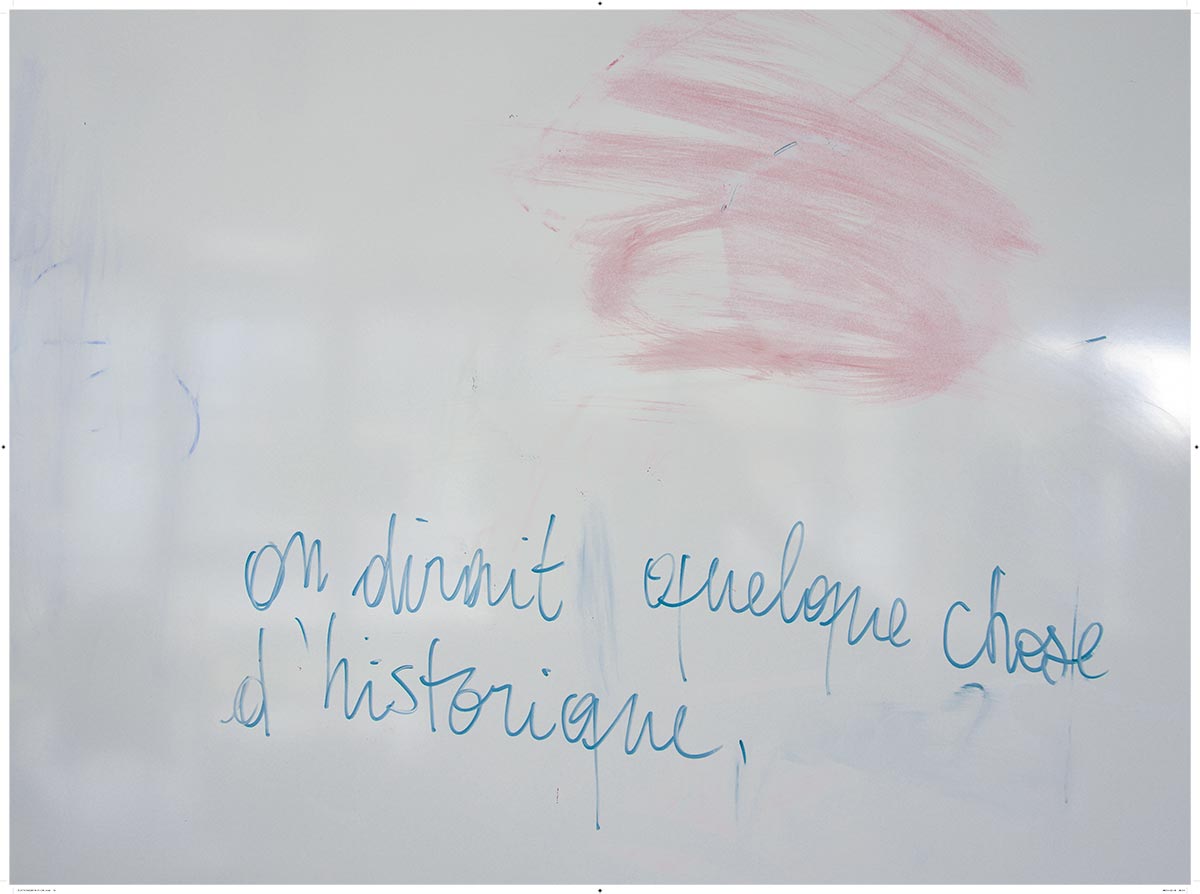 on dirait quelque chose
d'historique,